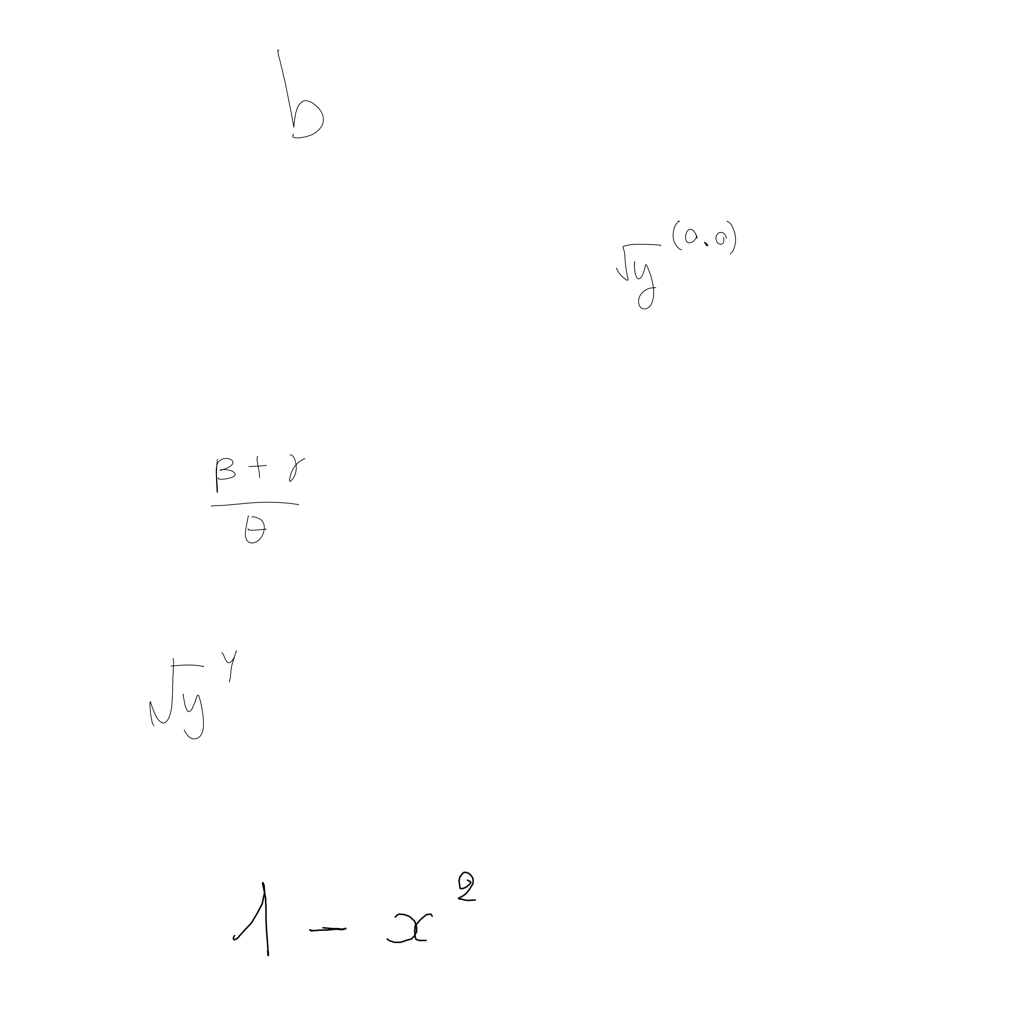 b
√y^(0.0)
(β + γ)/θ
√y^y
1 - x^2